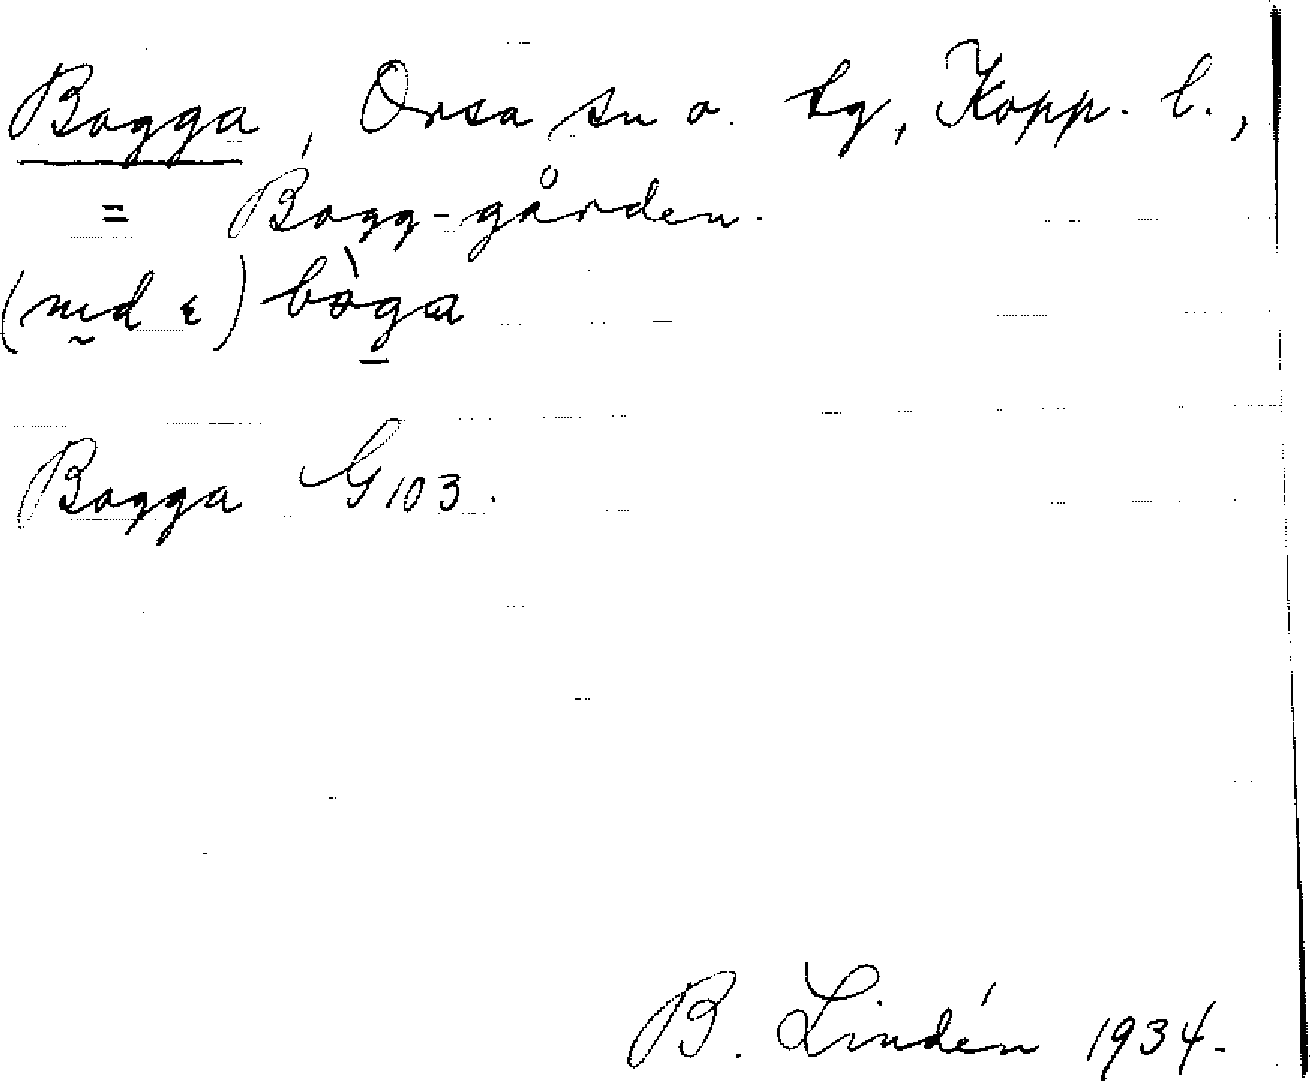 Bogga, Orsa sn o. tg, Kopp. l.,
= Bogg-gården.
(nᶁd ε) bòga
Bogga G 103.
B. Lindén 1934.